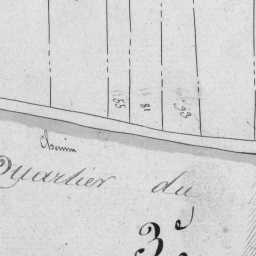 55
18
93
Chemin
Quartier du
3.e